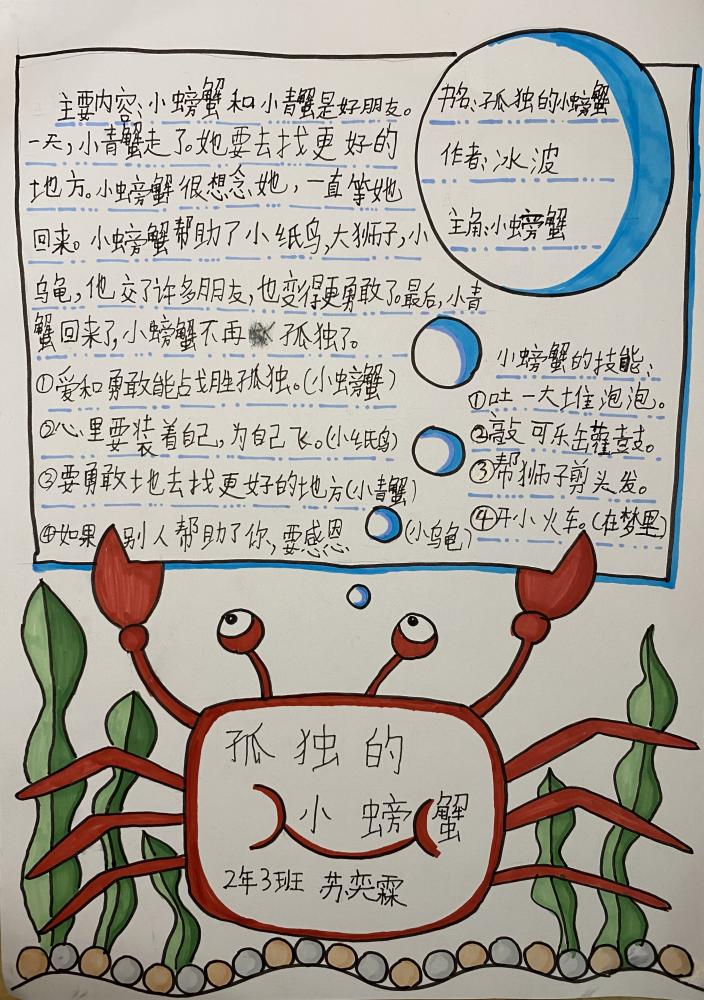 主要内容:小螃蟹和小青蟹是好朋友。
一天,小青蟹走了。她要去找更好的
地方。小螃蟹很想念她,一直等她
回来。小螃蟹帮助了小纸鸟,大狮子,小
乌龟,他交了许多朋友,也变得更勇敢了。最后,小青
蟹回来了,小螃蟹不再孤独了。
①爱和勇敢能占戈胜孤独。(小螃蟹)
②心里要装着自己,为自己飞。(小纸鸟)
③要勇敢地去找更好的地方(小青蟹)
④如果别人帮助了你,要感恩(小乌龟)
书名:孤独的小螃蟹
作者:冰波
主角:小螃蟹
小螃蟹的技能:
①吐一大堆泡泡。
②敲可乐缶藿鼓。
③帮狮子剪头发。
④开小火车。(在梦里)
孤独的
小螃蟹
2年3班 苏奕霖